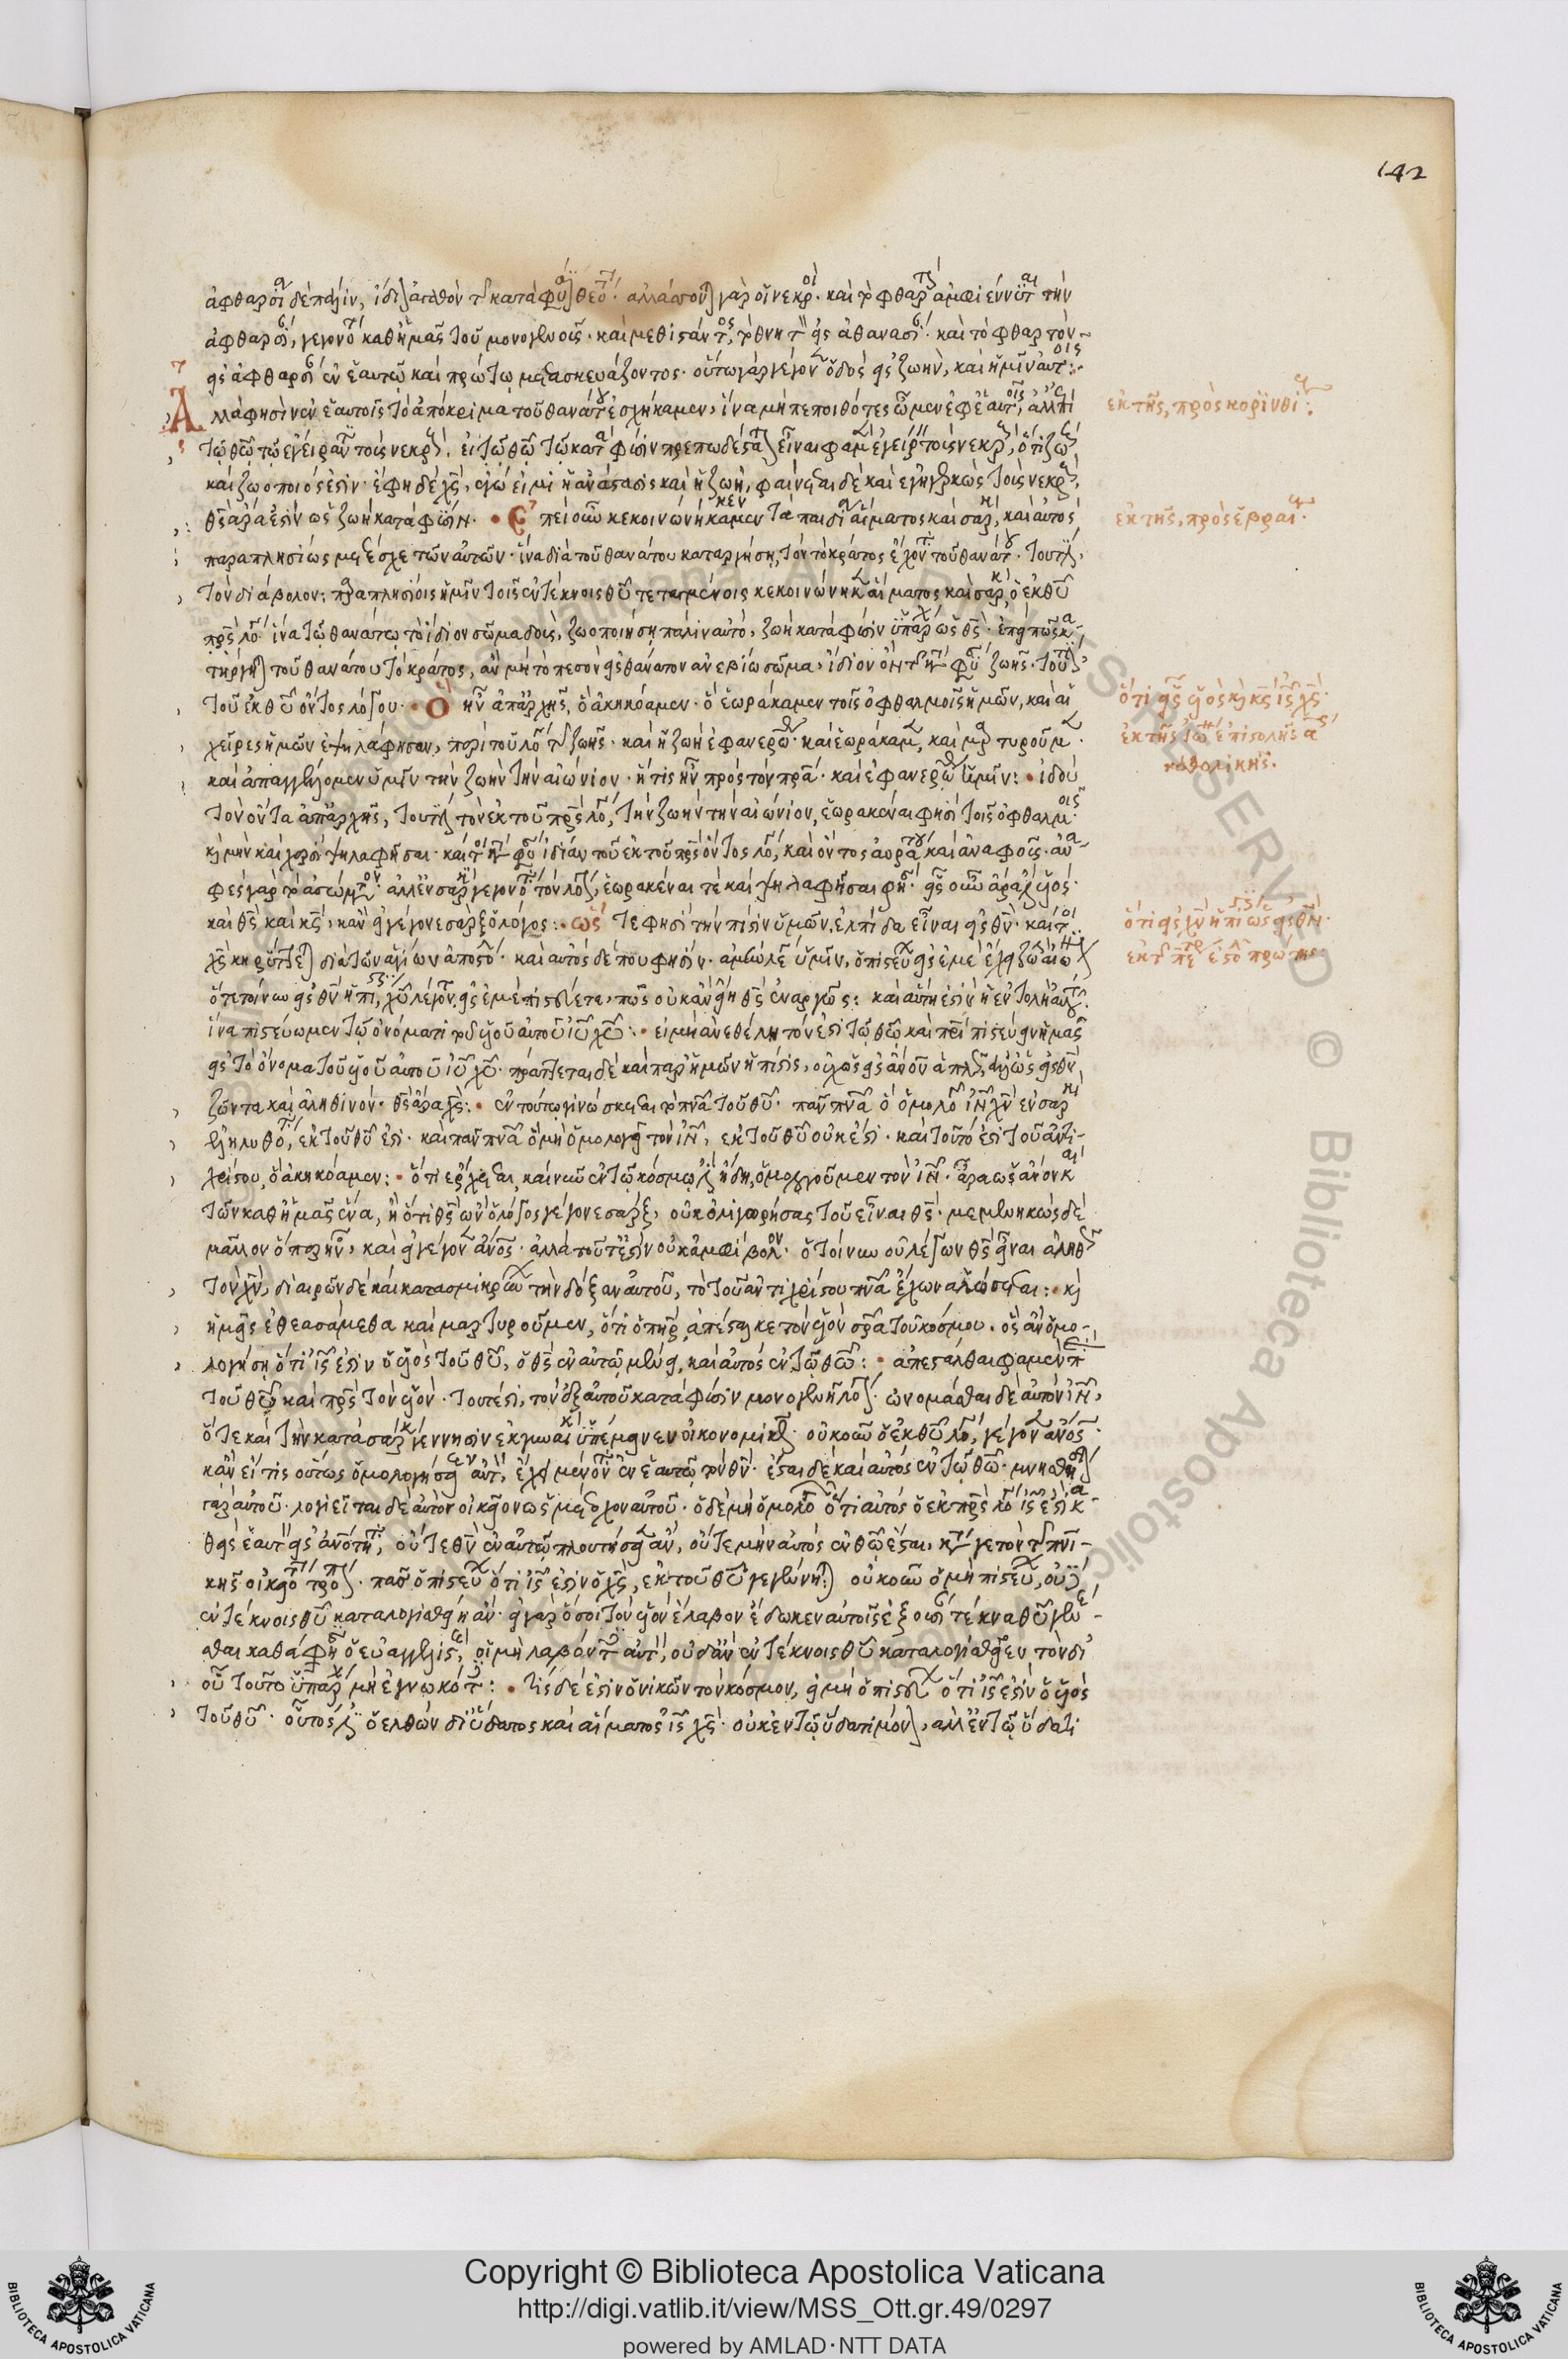 142
ἀφθαρσία δὲ πάλιν, ἴδιον ἀγαθὸν τῆς κατὰ φύσιν θεότητος· γὰρ οἱ νεκροί· καὶ τὸ φθαρτὸν ἀμφιέννυται τὴν
ἀφθαρσίαν, γεγονότος καθ' ἡμᾶς τοῦ μονογενοῦς· καὶ μεθιστάντος, τὸ θνητὸν εἰς ἀθανασίαν· καὶ τὸ φθαρτὸν
εἰς ἀφθαρσίαν ἐν ἑαυτῷ καὶ πρώτῳ μετασκευάζοντος· οὕτω γὰρ γέγονεν ὁδὸς εἰς ζωὴν, καὶ ἡμῖν αὐτοῖς:
Ἀλλά φησιν ἐν ἑαυτοῖς τὸ ἀπόκριμα τοῦ θανάτου ἐσχήκαμεν, ἵνα μὴ πεποιθότες ὦμεν ἐφ' ἑαυτοῖς, ἀλλ' ἐπὶ
τῷ θῶ τῷ ἐγείραντι τοὺς νεκρούς. εἰ τῷ θῶ τῷ κατὰ φύσιν πρεπωδέστατον εἶναί φαμεν ἐγείρειν τοὺς νεκρούς, ὅτι ζωὴ
καὶ ζωοποιός ἐστιν· ἔφη δὲ χς, ἐγώ εἰμι ἡ ἀνάστασις καὶ ἡ ζωή, φαίνεται δὲ καὶ ἐγηγερκὼς τοὺς νεκρούς,
θς ἄρα ἐστὶν ὡς ζωὴ κατὰ φύσιν. Ἐπεὶ οὖν κεκοινώνηκεν τὰ παιδία αἵματος καὶ σαρκὸς, καὶ αὐτὸς
παραπλησίως μετέσχε τῶν αὐτῶν· ἵνα διὰ τοῦ θανάτου καταργήσῃ, τὸν τὸ κράτος ἔχοντα τοῦ θανάτου· τουτέστι,
τὸν διάβολον· παραπλησίοις ἡμῖν τοῖς ἐν τέκνοις θῦ τεταγμένοις κεκοινώνηκεν αἵματος καὶ σαρκὸς, ὁ ἐκ θῦ
πρς λόγος· ἵνα τῷ θανάτῳ τὸ ἴδιον σῶμα δοὺς, ζωοποιήσῃ πάλιν αὐτὸ, ζωὴ κατὰ φύσιν ὑπάρχων ὡς θς· ἐπεὶ πῶς κα-
τήργηται τοῦ θανάτου τὸ κράτος, ἂν μὴ τὸ πεσὸν εἰς θάνατον ἀνεβίω σῶμα, ἴδιον ὂν τῆς κατὰ φύσιν ζωῆς· τουτέστι
τοῦ ἐκ θῦ ὄντος λόγου· Ὃ ἦν ἀπ' ἀρχῆς, ὃ ἀκηκόαμεν· ὃ ἑωράκαμεν τοῖς ὀφθαλμοῖς ἡμῶν, καὶ αἱ
χεῖρες ἡμῶν ἐψηλάφησαν, περὶ τοῦ λόγου τῆς ζωῆς· καὶ ἡ ζωὴ ἐφανερώθη· καὶ ἑωράκαμεν, καὶ μαρτυροῦμεν·
καὶ ἀπαγγέλλομεν ὑμῖν τὴν ζωὴν τὴν αἰώνιον· ἥτις ἦν πρὸς τὸν πρα· καὶ ἐφανερώθη ἡμῖν: ἰδοὺ
τὸν ὄντα ἀπ' ἀρχῆς, τουτέστι τὸν ἐκ τοῦ πρς λόγον, τὴν ζωὴν τὴν αἰώνιον, ἑωρακέναι φησὶ τοῖς ὀφθαλμοῖς·
καὶ μὴν καὶ χερσὶ ψηλαφῆσαι· καίτοι κατὰ φύσιν ἰδίαν τοῦ ἐκ τοῦ πρς ὄντος λόγου, καὶ ὄντος ἀοράτου καὶ ἀναφοῦς· ἀνα-
φὲς γὰρ τὸ ἀσώματον· ἀλλ' ἐν σαρκὶ γεγονότα τὸν λόγον, ἑωρακέναι τε καὶ ψηλαφῆσαί φησιν· εἷς οὖν ἄρα ἐστὶν υἱὸς·
καὶ θς καὶ κς, κἂν εἰ γέγονε σὰρξ ὁ λόγος: ὥστε φησὶ τὴν πίστιν ὑμῶν, ἐλπίδα εἶναι εἰς θν· καίτοι
χς κηρύττεται διὰ τῶν ἁγίων ἀποστόλων· καὶ αὐτὸς δέ πού φησιν· ἀμὴν λέγω ὑμῖν, ὁ πιστεύων εἰς ἐμὲ ἔχει ζωὴν αἰώνιον
ὅτε τοίνυν εἰς θν ἡ πίστις, χῦ λέγοντος εἰς ἐμὲ πιστεύετε, πῶς οὐκ ἂν εἴη θς ἐναργῶς: καὶ αὕτη ἐστὶν ἡ ἐντολὴ αὐτοῦ·
ἵνα πιστεύωμεν τῷ ὀνόματι τοῦ υἱοῦ αὐτοῦ ιῦ χῦ: εἰ μὴ ἀνεθέλητόν ἐστι τῷ θῶ καὶ πρὶ πιστεύειν ἡμᾶς
εἰς τὸ ὄνομα τοῦ υἱοῦ αὐτοῦ ιῦ χῦ· πράττεται δὲ καὶ παρ' ἡμῶν ἡ πίστις, οὐχ ὡς εἰς ἄνον ἁπλῶς, ἀλλ' ὡς εἰς θν
ζῶντα καὶ ἀληθινόν· θς ἄρα χς: ἐν τούτῳ γινώσκεται τὸ πνα τοῦ θῦ· πᾶν πνα ὃ ὁμολογεῖ ιν χν ἐν σαρκὶ
ἐληλυθότα, ἐκ τοῦ θῦ ἐστι· καὶ πᾶν πνα ὃ μὴ ὁμολογεῖ τὸν ιν, ἐκ τοῦ θῦ οὐκ ἔστι· καὶ τοῦτό ἐστι τοῦ ἀντι-
χρίστου, ὃ ἀκηκόαμεν: ὅτι ἔρχεται, καὶ νῦν ἐν τῷ κόσμῳ ἐστὶν ἤδη, ὁμολογοῦμεν τὸν ιν· ἆρα ὡς ἄνον καὶ
τῶν καθ' ἡμᾶς ἕνα, ἢ ὅτι θς ὢν ὁ λόγος γέγονε σὰρξ, οὐκ ὀλιγωρήσας τοῦ εἶναι θς· μεμενηκὼς δὲ
μᾶλλον ὅπερ ἦν, καὶ εἰ γέγονεν ἄνος· ἀλλὰ τοῦτ' ἔστιν οὐκ ἀμφίβολον· ὁ τοίνυν οὐ λέγων θν εἶναι ἀληθῶς
τὸν χν, διαιρῶν δὲ καὶ κατασμικρύνων τὴν δόξαν αὐτοῦ, τὸ τοῦ ἀντιχρίστου πνα ἔχων ἁλώσεται: καὶ
ἡμεῖς ἐθεασάμεθα καὶ μαρτυροῦμεν, ὅτι ὁ πηρ ἀπέσταλκε τὸν υἱὸν σρα τοῦ κόσμου. ὃς ἂν ὁμο-
λογήσῃ ὅτι ις ἐστὶν ὁ υἱὸς τοῦ θῦ, ὁ θς ἐν αὐτῷ μένει, καὶ αὐτὸς ἐν τῷ θῶ: ἀπεστάλθαι φαμὲν
τοῦ θῦ καὶ πρς τὸν υἱὸν· τουτέστι, τὸν ἐξ αὐτοῦ κατὰ φύσιν μονογενῆ λόγον· ὠνομάσθαι δὲ αὐτὸν ιν,
ὅτε καὶ τὴν κατὰ σάρκα γέννησιν ἐκ γυναικὸς ὑπέμεινεν οἰκονομικῶς· οὐκοῦν ὁ ἐκ θῦ λόγος, γέγονεν ἄνος·
κἂν εἴ τις οὕτως ὁμολογήσειεν αὐτὸν, ἔχει μένοντα ἐν ἑαυτῷ τὸν θν· ἔσται δὲ καὶ αὐτὸς ἐν τῷ θῶ·
αὐτοῦ· λογιεῖται δὲ αὐτὸν οἰκεῖον ὡς μέτοχον αὐτοῦ· ὁ δὲ μὴ ὁμολογῶν ὅτι αὐτὸς ὁ ἐκ πρς λόγος ις ἐστὶ κα-
θεὶς ἑαυτὸν εἰς ἀνότητα, οὔτε θν ἐν αὐτῷ πλουτήσειεν ἂν, οὔτε μὴν αὐτὸς ἐν θῶ ἔσται, κατά γε τὸν τῆς πνι-
κῆς οἰκειότητος τρόπον· πᾶς ὁ πιστεύων ὅτι ις ἐστὶν ὁ χς, ἐκ τοῦ θῦ γεγέννηται οὐκοῦν ὁ μὴ πιστεύων, οὐδὲ
ἐν τέκνοις θῦ καταλογισθείη ἂν· εἰ γὰρ ὅσοι τὸν υἱὸν ἔλαβον ἔδωκεν αὐτοῖς ἐξουσίαν τέκνα θῦ γενέ-
σθαι καθά φησιν ὁ εὐαγγελιστὴς, οἱ μὴ λαβόντες αὐτὸν, οὐδ' ἂν ἐν τέκνοις θῦ καταλογισθεῖεν τὸν δι'
οὗ τοῦτο ὑπάρχει μὴ ἐγνωκότες: τίς δέ ἐστιν ὁ νικῶν τὸν κόσμον, εἰ μὴ ὁ πιστεύων ὅτι ις ἐστὶν ὁ υἱὸς
τοῦ θῦ· οὗτός ἐστιν ὁ ἐλθὼν δι' ὕδατος καὶ αἵματος ις χς· οὐκ ἐν τῷ ὕδατι μόνον, ἀλλ' ἐν τῷ ὕδατι
ἐκ τῆς, πρὸς κορινθίους:
ἐκ τῆς, πρὸς ἑβραίους·
ὅτι εἷς υἱὸς καὶ κς ις χς·
ἐκ τῆς ἰω ἐπιστολῆς α
καθολικῆς·
ὅτι εἰς χν ἡ πίστις ὡς εἰς θν·
ἐκ τῆς πέτρου ἐπιστολῆς πρώτης·
Copyright © Biblioteca Apostolica Vaticana
http://digi.vatlib.it/view/MSS_Ott.gr.49/0297
powered by AMLAD·NTT DATA